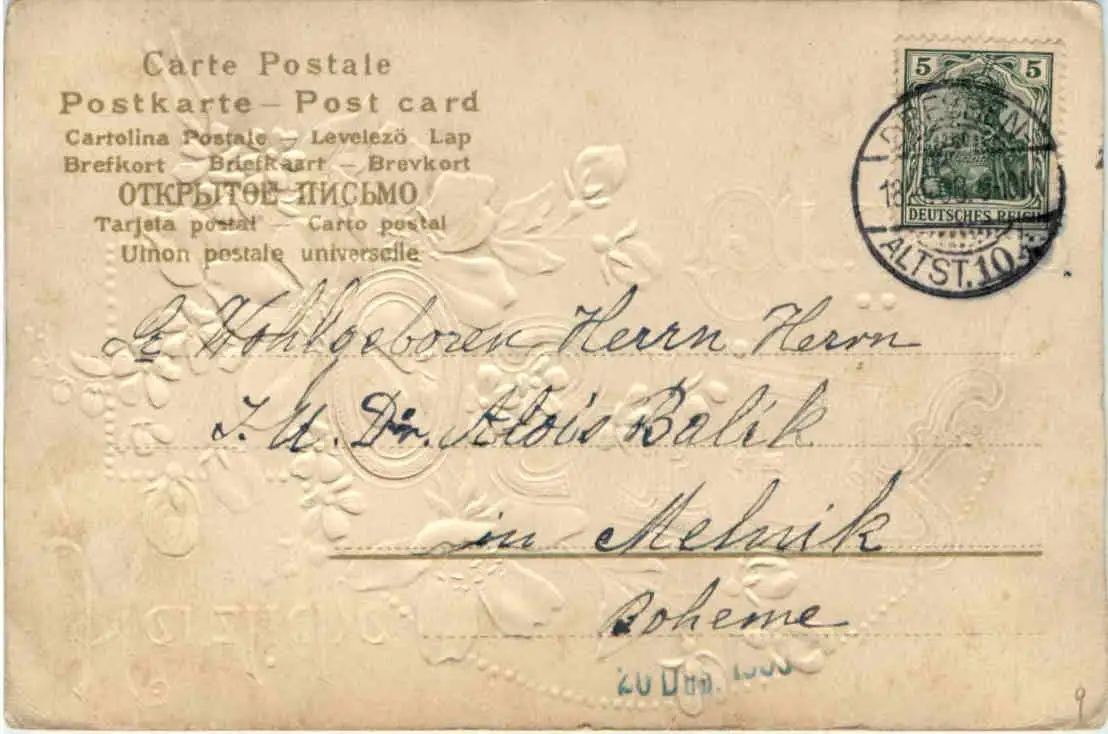 Carte Postale
Postkarte – Post card
Cartolina Postale – Levelező Lap
Brefkort – Briefkaart – Brevkort
ОТКРЫТОЕ ПИСЬМО
Tarjeta postal – Carto postal
Uinon postale universelle
5 5
DEUTSCHES REICH
DRESDEN
ALTST. 10
E Wohlgeboren Herrn Herrn
J. U. Dr. Alois Balík
in Melnik
Boheme
20 Dez.
9